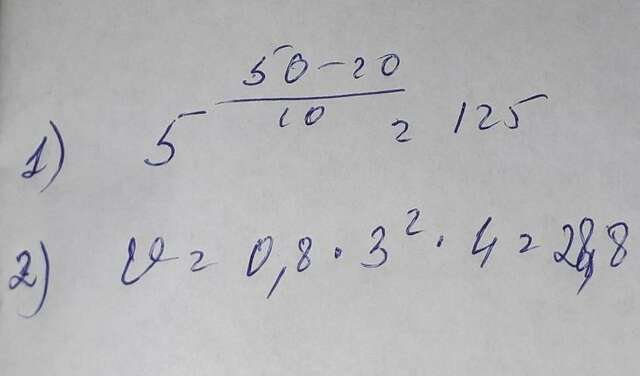 1) 5^((50-20)/10) = 125
2) v = 0,8 · 3² · 4 = 28,8